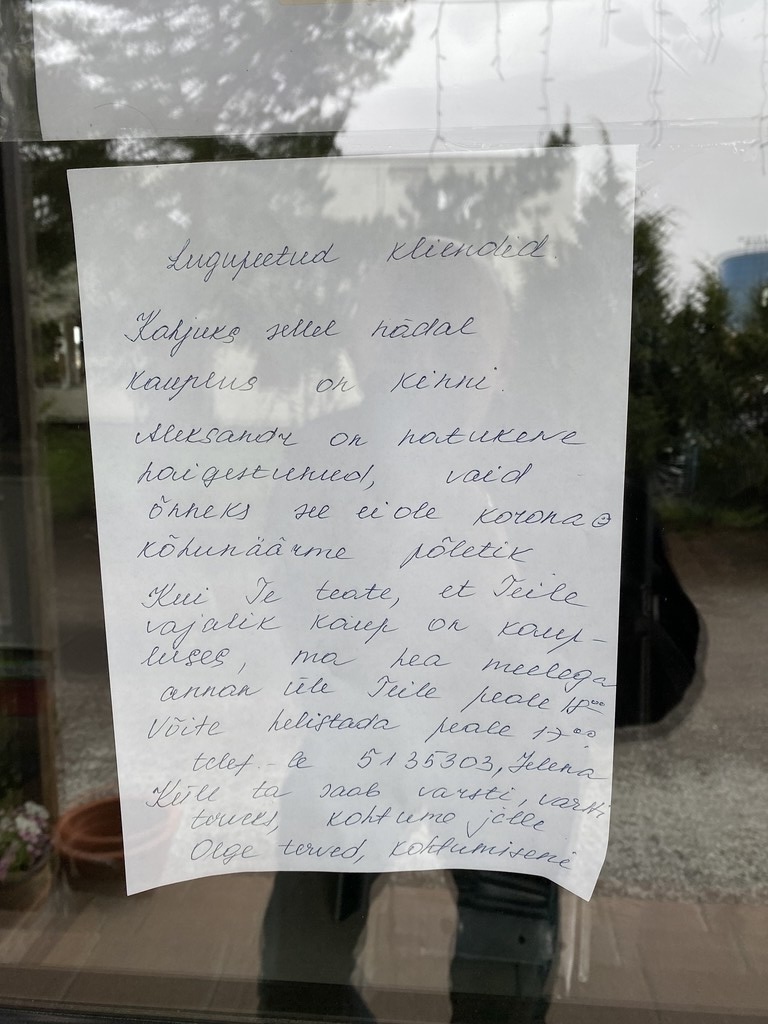 Lugupeetud kliendid.
Kahjuks sellel nädal
kauplus on kinni.
Aleksandr on natukene
haigestunud, vaid
õnneks see ei ole korona☺
kõhunäärme põletik
Kui Te teate, et Teile
vajalik kaup on kaup-
luses, ma hea meelega
annan üle Teile peale
Võite helistada peale 17⁰⁰.
telef.-le 5135303, Jelena
Küll ta saab varsti, varsti
terveks, kohtume jälle
Olge terved, kohtumiseni